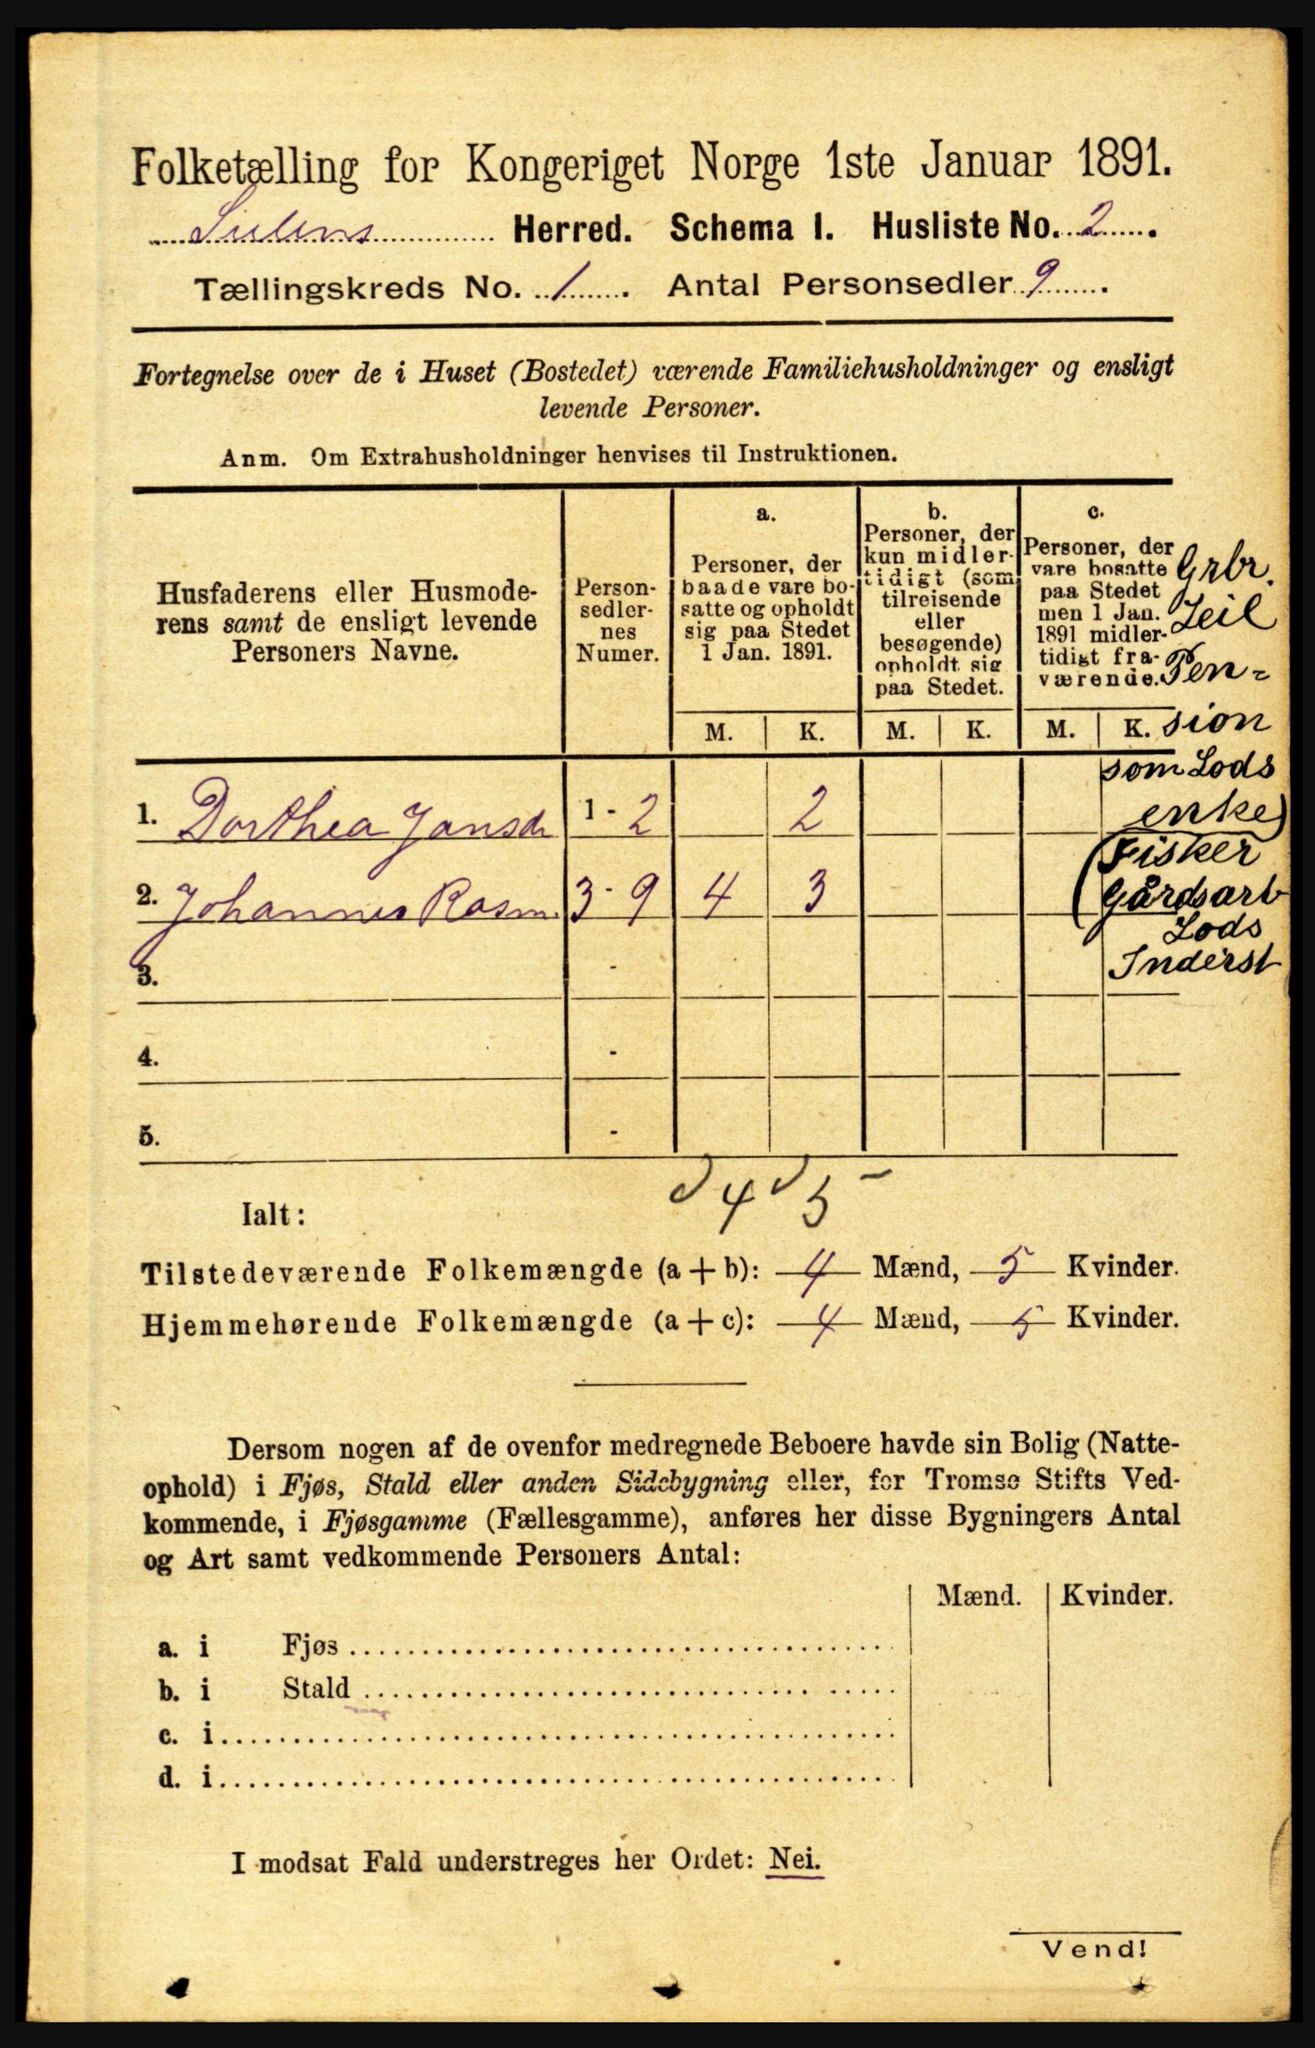 Folketælling for Kongeriget Norge 1ste Januar 1891.
Sulens Herred. Schema I. Husliste No. 2.
Tællingskreds No. 1. Antal Personsedler 9.
Fortegnelse over de i Huset (Bostedet) værende Familiehusholdninger og ensligt
levende Personer.
Anm. Om Extrahusholdninger henvises til Instruktionen.
Husfaderens eller Husmode-
rens samt de ensligt levende
Personers Navne.
Person-
sedler-
nes
Numer.
a.
Personer, der
baade vare bo-
satte og opholdt
sig paa Stedet
1 Jan. 1891.
b.
Personer, der
kun midler-
tidigt (som
tilreisende
eller
besøgende)
opholdt sig
paa Stedet.
c.
Personer, der
vare bosatte
paa Stedet
men 1 Jan.
1891 midler-
tidigt fra-
værende.
M. K. M. K. M. K.
Grbr.
Leil
Pen=
sion
som Lods
enke)
(Fisker
Gårdsarb
Lods
Inderst
1. Dorthea Jansd 1 - 2 2
2. Johannes Rasm. 3 - 9 4 3
3. -
4. -
5. -
4 5 -
Ialt:
Tilstedeværende Folkemængde (a + b): 4 Mænd, 5 Kvinder.
Hjemmehørende Folkemængde (a + c): 4 Mænd, 5 Kvinder.
Dersom nogen af de ovenfor medregnede Beboere havde sin Bolig (Natte-
ophold) i Fjøs, Stald eller anden Sidebygning eller, for Tromsø Stifts Ved-
kommende, i Fjøsgamme (Fællesgamme), anføres her disse Bygningers Antal
og Art samt vedkommende Personers Antal:
Mænd. Kvinder.
a. i Fjøs
b. i Stald
c. i
d. i
I modsat Fald understreges her Ordet: Nei.
Vend!